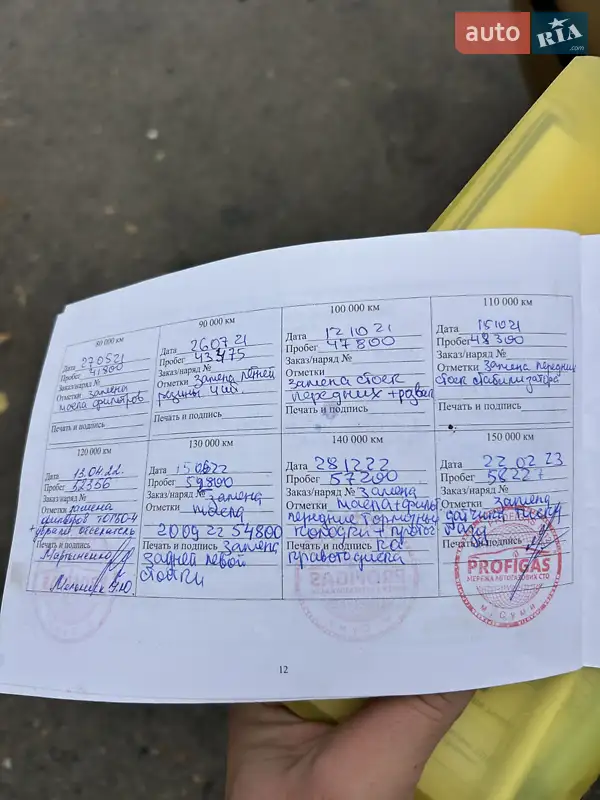 auto RIA .com
80 000 км
Дата 270521
Пробег 41800
Заказ/наряд №
Отметки замена
масла фильтров
Печать и подпись
90 000 км
Дата 260721
Пробег 43475
Заказ/наряд №
Отметки замена летней
резины
Печать и подпись
100 000 км
Дата 121021
Пробег 47800
Заказ/наряд №
Отметки
замена стоек
передних + развал
Печать и подпись
110 000 км
Дата 151021
Пробег 48300
Заказ/наряд №
Отметки замена передних
стоек стабилизатора
Печать и подпись
120 000 км
Дата 13.04.22
Пробег
Заказ/наряд №
Отметки замена
Печать и подпись
Мартыненко
130 000 км
Дата
Пробег
Заказ/наряд № замена
Отметки масла
200922 54800
Печать и подпись замена
задней левой
стойки
140 000 км
Дата 281222
Пробег 57200
Заказ/наряд № замена
Отметки масла+фильт
передние тормозные
колодки +
Печать и подпись
правого диска
150 000 км
Дата 22 02 23
Пробег
Заказ/наряд №
Отметки замена
Печать и подпись
PROFIGAS
МЕРЕЖА АВТОГАЗОВИХ СТО
м. Суми
12